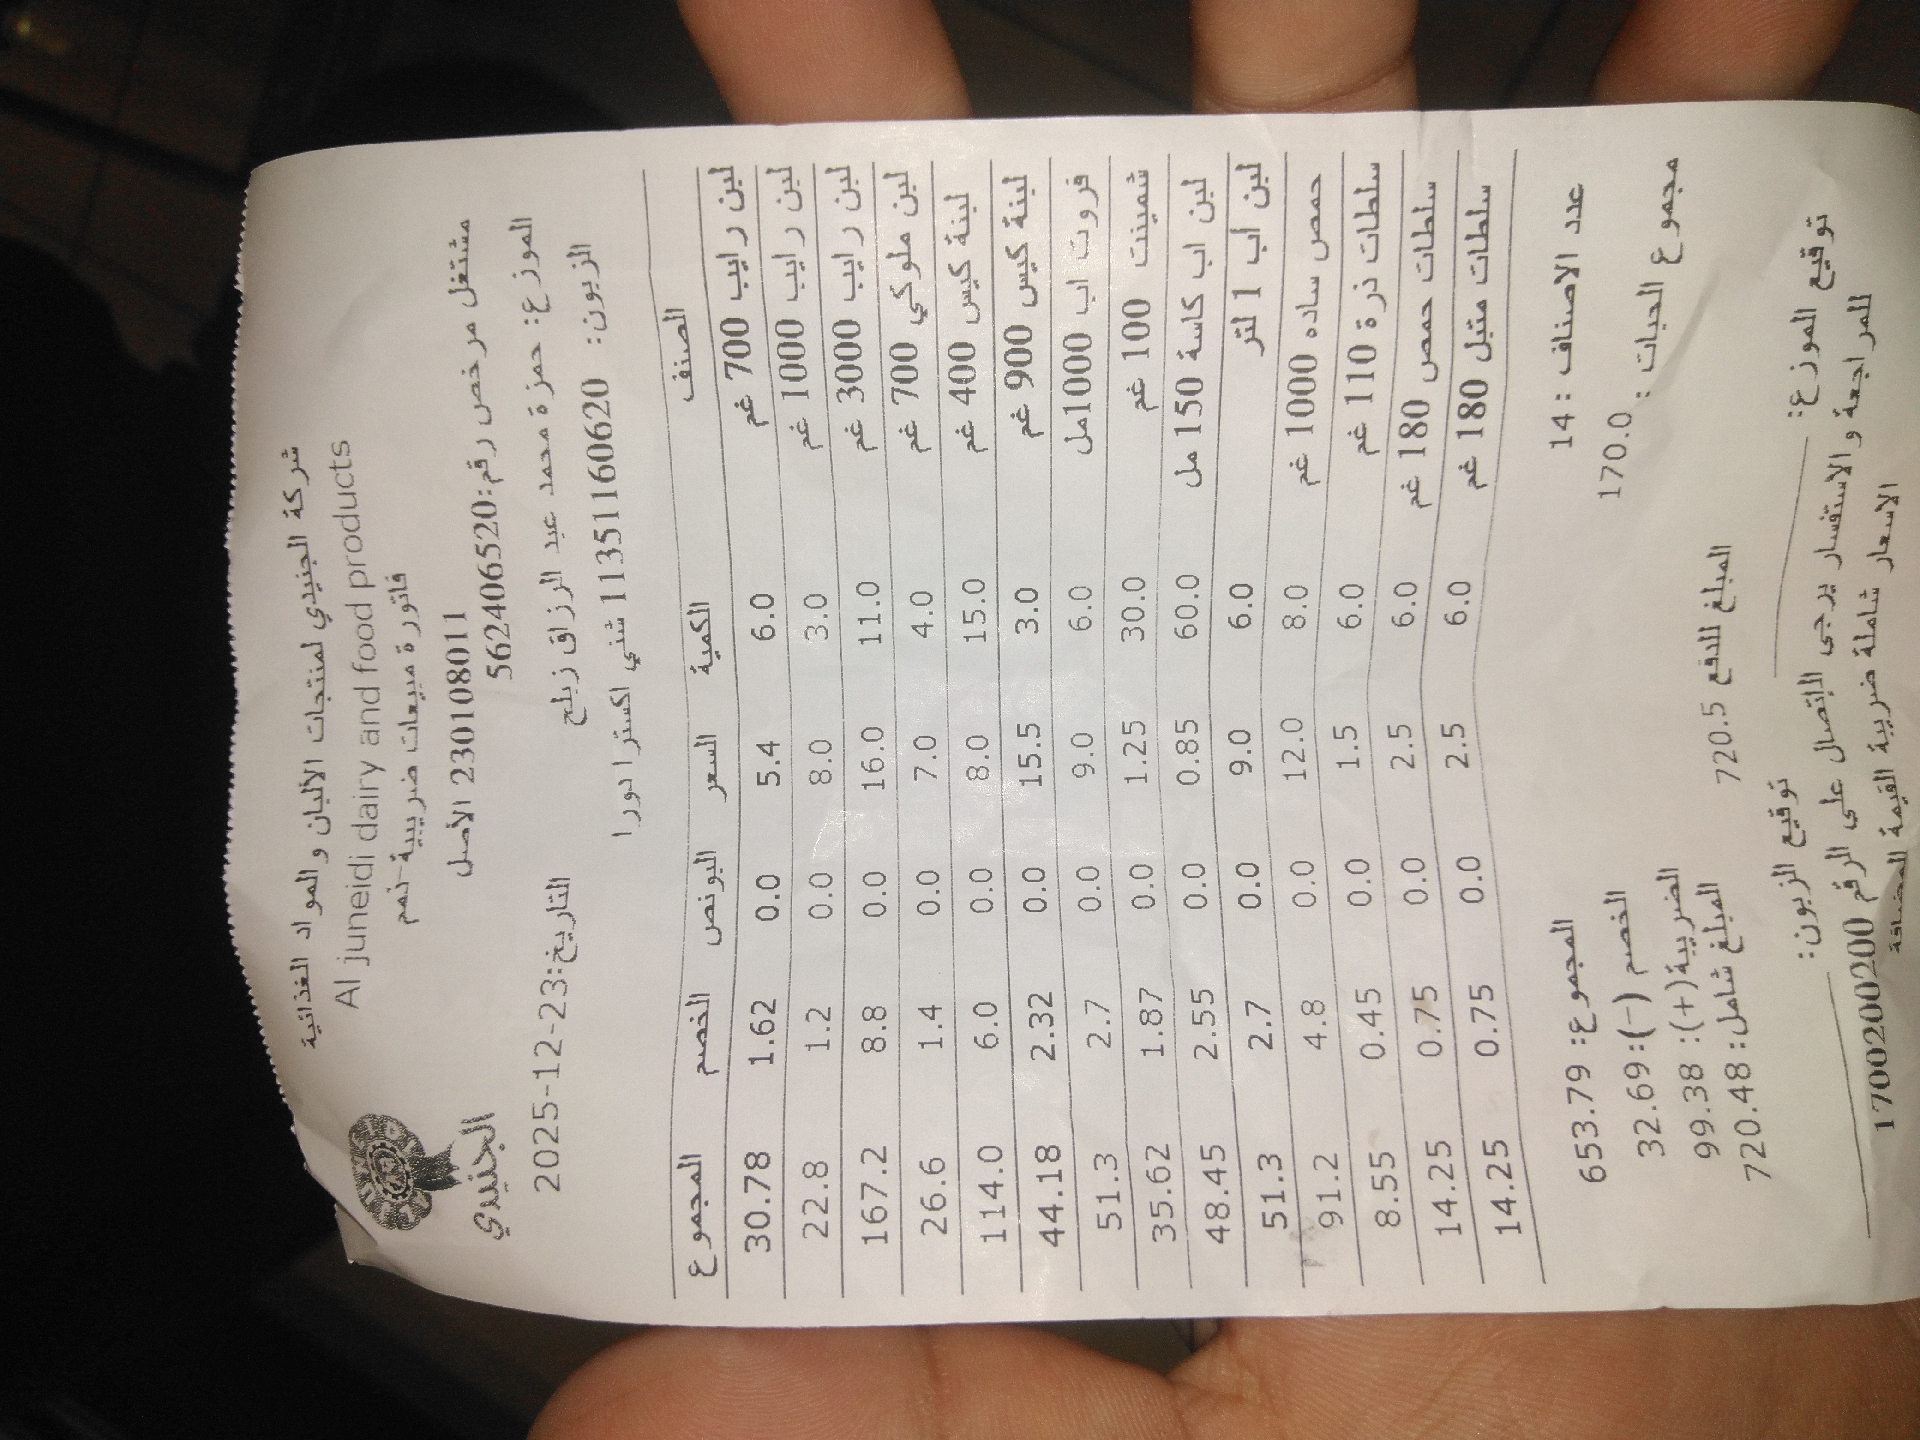 شركة الجنيدي لمنتجات الألبان والمواد الغذائية
Al juneidi dairy and food products
فاتورة مبيعات ضريبية-نمم
الجنيدي
مشتغل مرخص رقم:562406520
230108011 الأصل
الموزع: حمزة محمد عبد الرزاق زبلح
التاريخ:23-12-2025
الزبون: 1135116060620 شني اكسترا دورا
الصنف الكمية السعر البونص الخصم المجموع
لبن رايب 700 غم 6.0 5.4 0.0 1.62 30.78
لبن رايب 1000 غم 3.0 8.0 0.0 1.2 22.8
لبن رايب 3000 غم 11.0 16.0 0.0 8.8 167.2
لبن ملوكي 700 غم 4.0 7.0 0.0 1.4 26.6
لبنة كيس 400 غم 15.0 8.0 0.0 6.0 114.0
لبنة كيس 900 غم 3.0 15.5 0.0 2.32 44.18
فروت اب 1000مل 6.0 9.0 0.0 2.7 51.3
شمينت 100 غم 30.0 1.25 0.0 1.87 35.62
لبن اب كاسة 150 مل 60.0 0.85 0.0 2.55 48.45
لبن اب 1 لتر 6.0 9.0 0.0 2.7 51.3
حمص ساده 1000 غم 8.0 12.0 0.0 4.8 91.2
سلطات ذرة 110 غم 6.0 1.5 0.0 0.45 8.55
سلطات حمص 180 غم 6.0 2.5 0.0 0.75 14.25
سلطات متبل 180 غم 6.0 2.5 0.0 0.75 14.25
عدد الاصناف : 14
المجموع: 653.79
مجموع الحبات : 170.0
الخصم (-): 32.69
الضريبة(+): 99.38
المبلغ للدفع 720.5
المبلغ شامل: 720.48
توقيع الموزع: ________
توقيع الزبون: ________
للمراجعة والاستفسار يرجى الاتصال على الرقم 1700200200
الاسعار شاملة ضريبة القيمة المضافة